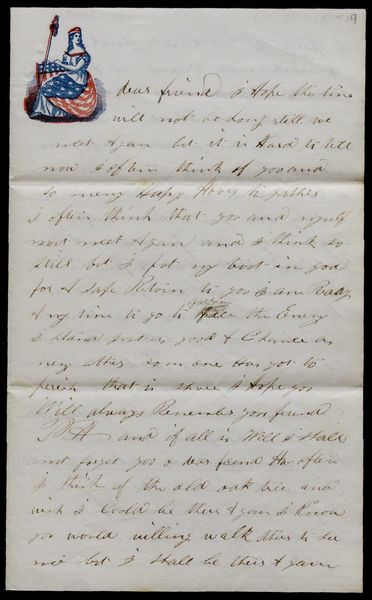 19
dear friend I Hope the time
will not be Long till we
meet Again but it is Hard to tell
now I often think of you and
so meny Happy Hours to gather
I often think that you and myself
most meet Again and I think so
still but I put my trust in god
for A safe Return to you I am Ready
A ny time to go to face the Enemy
I stand just as good A Chance as
eney other som one Has got to
perish that is shure I Hope you
Will always Remember you friend
and if all is Well I shall
not forget you o dear friend How often
I think of the old oak tree and
wish I Could be ther Again I Know
you would willing walk ther to see
me but I shall be ther Again